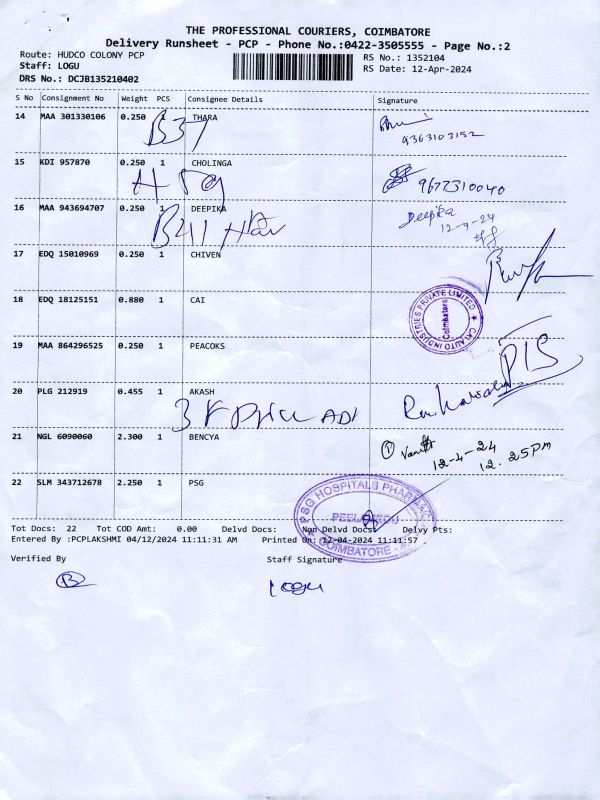 THE PROFESSIONAL COURIERS, COIMBATORE
Delivery Runsheet - PCP - Phone No.:0422-3505555 - Page No.:2
Route: HUDCO COLONY PCP
Staff: LOGU
DRS No.: DCJB135210402
RS No.: 1352104
RS Date: 12-Apr-2024
S No Consignment No Weight PCS Consignee Details Signature
14 MAA 301330106 0.250 1 THARA
B37
9363103152
15 KDI 957870 0.250 1 CHOLINGA
9677310040
16 MAA 943694707 0.250 1 DEEPIKA
B411
Deepika
12-4-24
17 EDQ 15010969 0.250 1 CHIVEN
18 EDQ 18125151 0.880 1 CAI
CAI AUTO INDUSTRIES PRIVATE LIMITED
Coimbatore
19 MAA 864296525 0.250 1 PEACOKS
20 PLG 212919 0.455 1 AKASH
21 NGL 6090060 2.300 1 BENCYA
12-4-24
12.25PM
22 SLM 343712678 2.250 1 PSG
PSG HOSPITALS PHARMACY
COIMBATORE
Tot Docs: 22 Tot COD Amt: 0.00 Delvd Docs: Non Delvd Docs: Delvy Pts:
Entered By :PCPLAKSHMI 04/12/2024 11:11:31 AM Printed On: 12-04-2024 11:11:57
Verified By Staff Signature
Logu